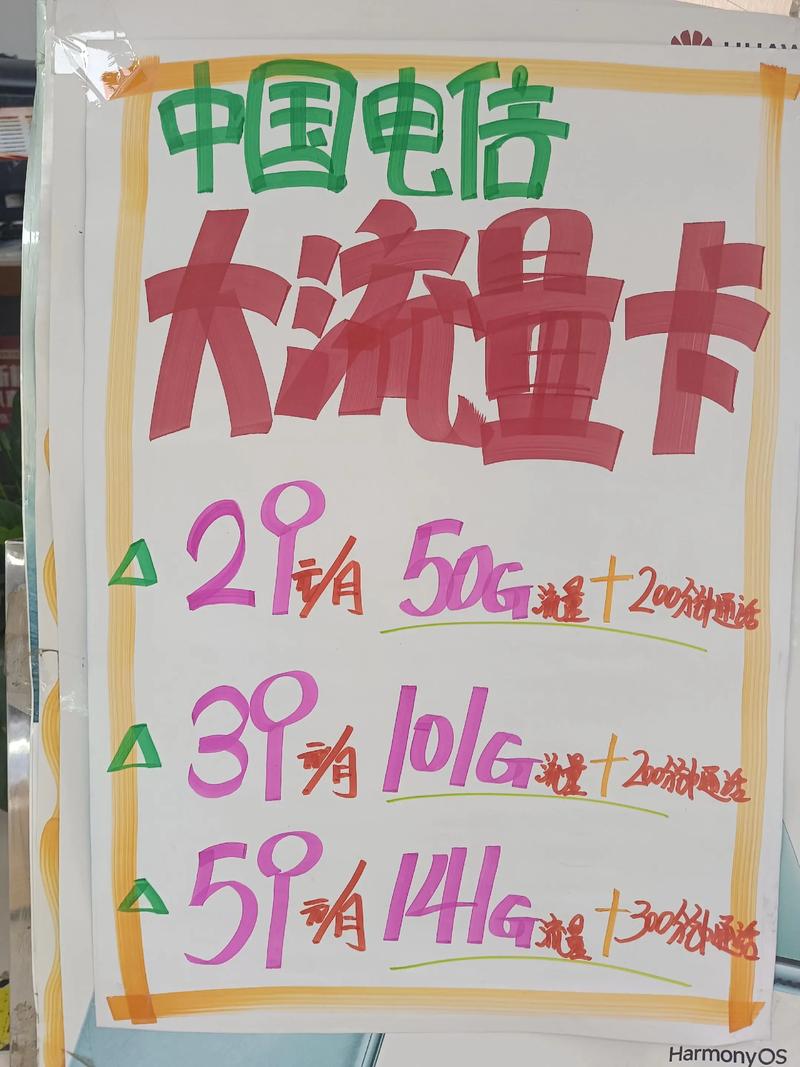 中国电信
大流量卡
29元/月 50G流量+200分钟通话
39元/月 101G流量+200分钟通话
59元/月 141G流量+300分钟通话
HarmonyOS